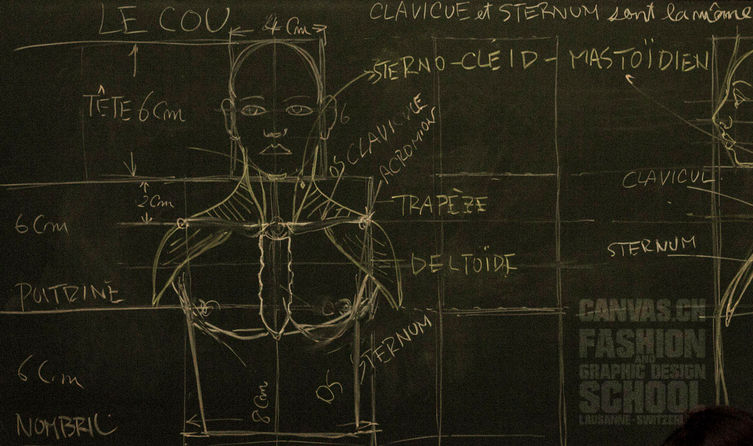 LE COU
4 Cm
CLAVICUE et STERNUM sont la même
STERNO-CLÉID-MASTOÏDIEN
TÊTE 6 Cm
6
OS CLAVICULE
ACROMION
2 Cm
CLAVICUL
TRAPÈZE
6 Cm
STERNUM
DELTOÏDE
POITRINE
OS STERNUM
6 Cm
8 Cm
NOMBRIL
CANVAS.CH
FASHION
AND
GRAPHIC DESIGN
SCHOOL